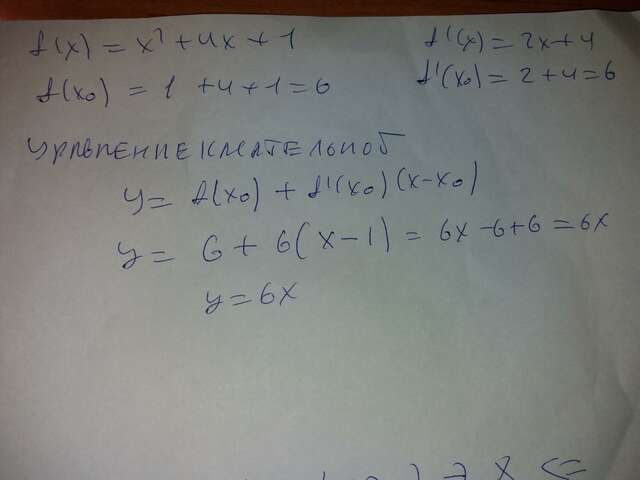 f(x) = x² + 4x + 1
f'(x) = 2x + 4
f(x₀) = 1 + 4 + 1 = 6
f'(x₀) = 2 + 4 = 6
УРАВНЕНИЕ КАСАТЕЛЬНОЙ
y = f(x₀) + f'(x₀)(x - x₀)
y = 6 + 6(x - 1) = 6x - 6 + 6 = 6x
y = 6x